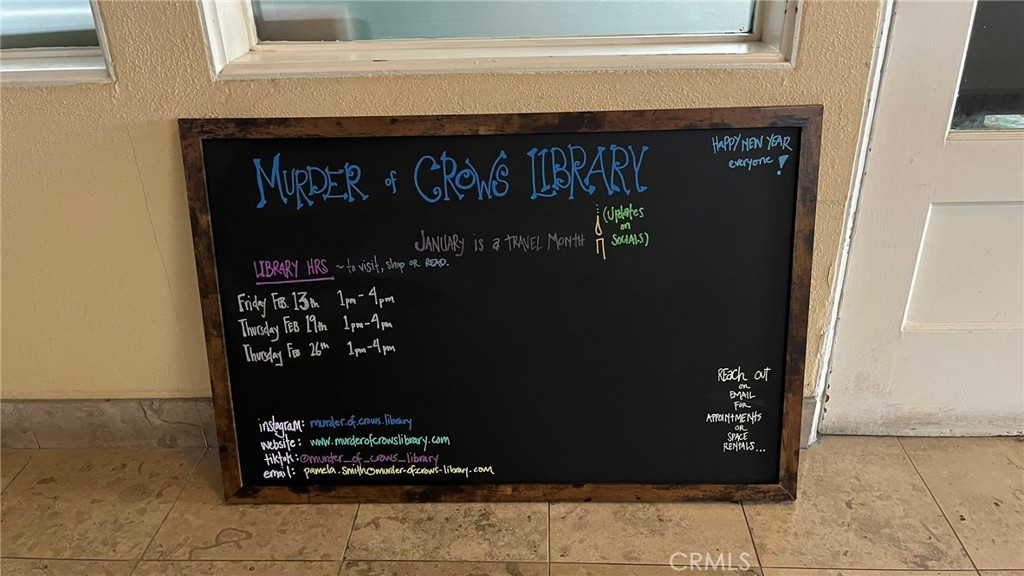 MURDER of CROWS LIBRARY
HAPPY NEW YEAR
everyone!
JANUARY is a TRAVEL MONTH
(Updates
on
SOCIALS)
LIBRARY HRS ~ to visit, shop or READ.
Friday FEB 13th 1pm-4pm
Thursday FEB 19th 1pm-4pm
Thursday FEB 26th 1pm-4pm
REACH OUT
on
EMAIL
FOR
APPOINTMENTS
OR
SPACE
RENTALS...
instagram: murder.of.crows.library
website: www.murderofcrowslibrary.com
tiktok: @murder_of_crows_library
email: pamela.smith@murder-ofcrows-library.com
CRMLS